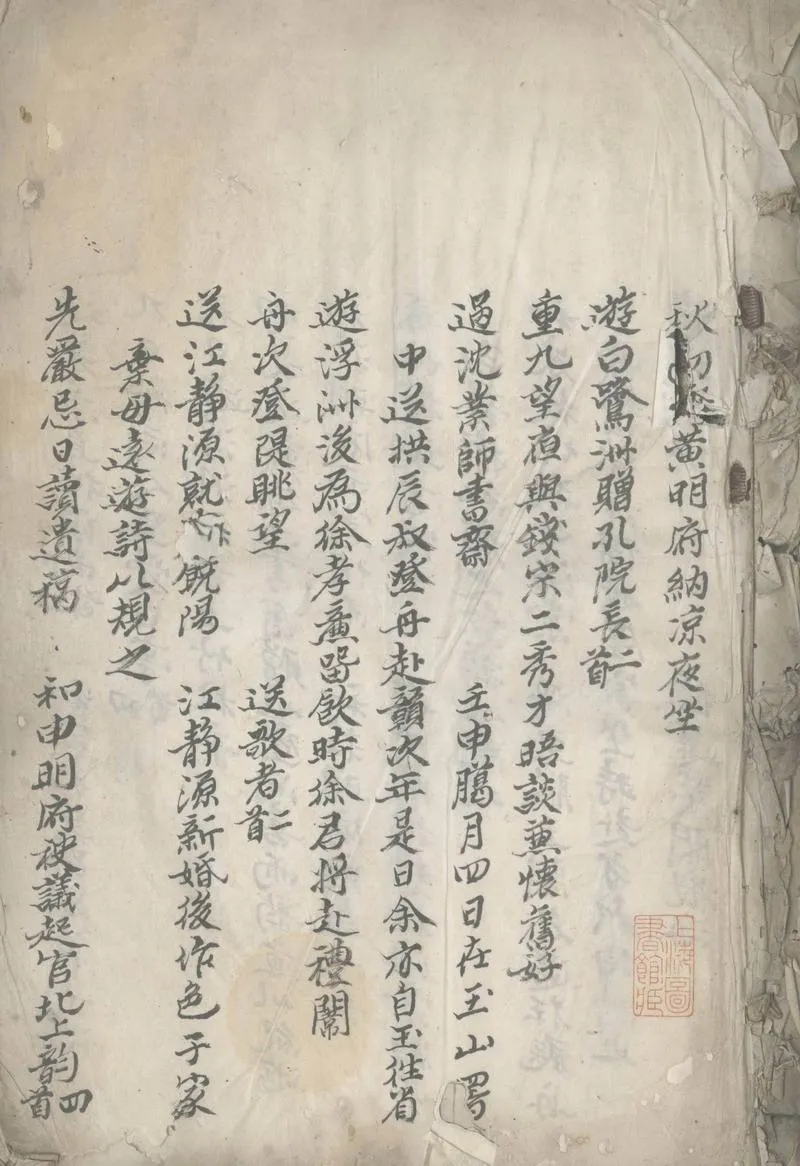 秋初登黃明府納凉夜坐
遊白鷺洲贈孔院長二首
重九望夜與錢宋二秀才晤談兼懷舊好
過沈業師書齋　壬申臈月四日在玉山署
中送拱辰叔登舟赴贛次年是日余亦自玉徃省
遊浮洲後為徐孝廉留飲時徐君将赴禮闈
舟次登隄眺望　送歌者二首
送江静源就館饒陽　江静源新婚後作色于家
棄母遠遊詩以規之
先嚴忌日讀遺稿　和申明府被議起官北上韵四首
上海圖書館藏